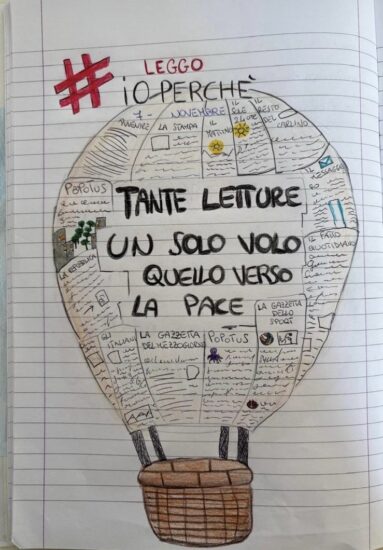 # LEGGO
iO PERCHÈ
7 - NOVEMBRE
LA STAMPA
IL MATTINO
IL SOLE 24 ORE
IL RESTO DEL CARLINO
IL MESSAGGERO
POPOTUS
TANTE LETTURE
UN SOLO VOLO
QUELLO VERSO
LA PACE
IL FATTO QUOTIDIANO
LA REPUBBLICA
LA GAZZETTA DELLO SPORT
LA GAZZETTA DEL MEZZOGIORNO
POPOTUS